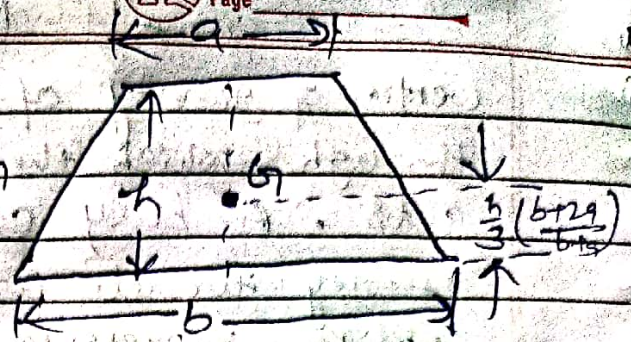 Page
a
h
G
h/3 (b+2a/b+a)
b